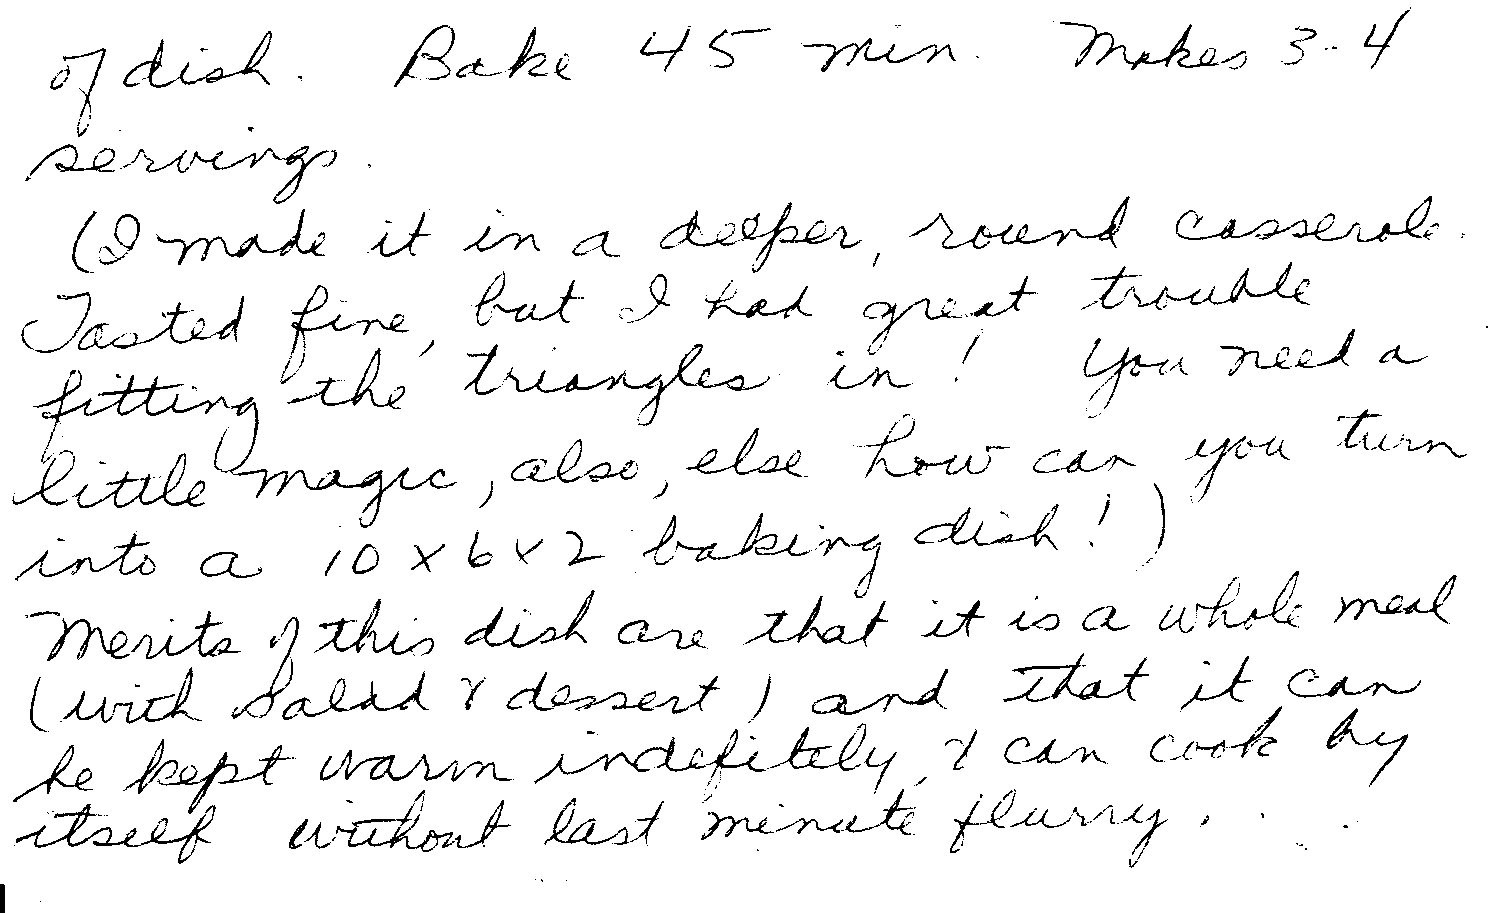 of dish. Bake 45 min. Makes 3-4
servings.
(I made it in a deeper, round casserole.
Tasted fine, but I had great trouble
fitting the triangles in! You need a
little magic, also, else how can you turn
into a 10 x 6 x 2 baking dish!)
Merits of this dish are that it is a whole meal
(with salad & dessert) and that it can
be kept warm indefitely, & can cook by
itself without last minute flurry.